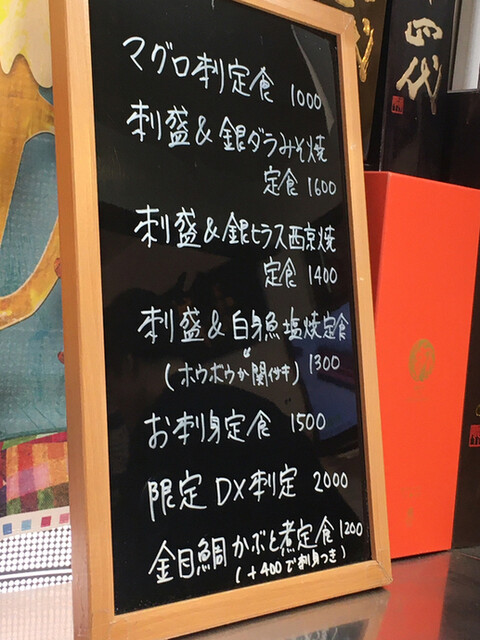 マグロ刺定食 1000
刺盛&銀ダラみそ焼
定食 1600
刺盛&銀ヒラス西京焼
定食 1400
刺盛&白身魚塩焼定食
(ホウボウか関付き) 1300
お刺身定食 1500
限定DX刺定 2000
金目鯛かぶと煮定食 1200
(+400で刺身つき)
十四代